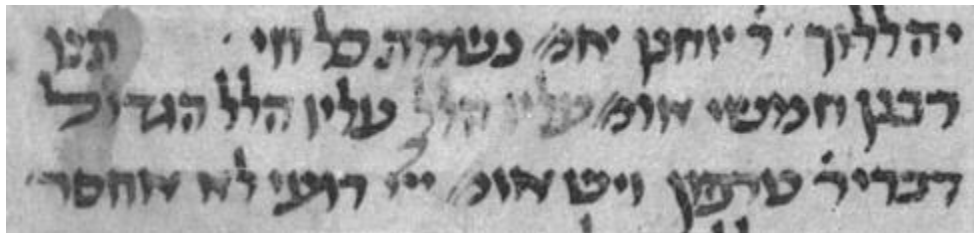 יהללוך ר' יוחנן אומ' נשמת כל חי תנו
רבנן חמשי אומ' עליו הלל עליו הלל הגדול
דברי ר' טרפון ויש אומ' ייי רועי לא אחסר